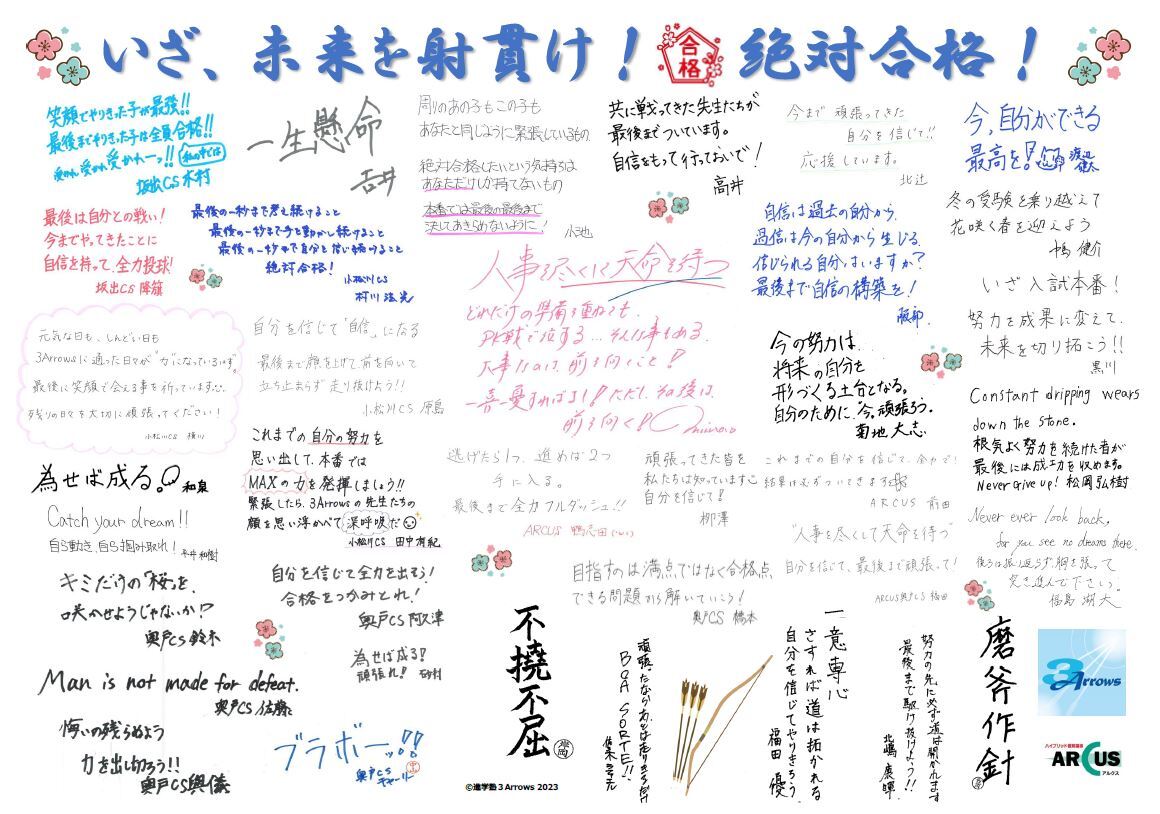 いざ、未来を射貫け！
合格
絶対合格！
笑顔でやりきった子が最強!!
最後までやりきった子は全員合格!!
受かれ受かれ受かれーっ!!
私の中では
坂出CS 木村
一生懸命
吉井
周りのあの子もこの子も
あなたと同じように緊張しているもの。
絶対合格したいという気持ちは
あなただけしか持てないもの
本番では最後の最後まで
決してあきらめないように！
小池
共に戦ってきた先生たちが
最後までついています。
自信をもって行っておいで！
高井
今まで頑張ってきた
自分を信じて!!
応援しています。
北辻
今,自分ができる
最高を!
最後は自分との戦い!
今までやってきたことに
自信を持って、全力投球!
坂出CS 降旗
最後の一秒まで考え続けること
最後の一秒まで手を動かし続けること
最後の一秒まで自分を信じ続けること
絶対合格！
小松川CS
村川
自信は過去の自分から、
過信は今の自分から生じる。
信じられる自分はいますか？
最後まで自信の構築を！
阪部
冬の受験を乗り越えて
花咲く春を迎えよう
健介
いざ入試本番！
努力を成果に変えて、
未来を切り拓こう!!
黒川
人事を尽くして天命を待つ
どれだけの準備を重ねても、
PK戦で泣する…そんな事もある。
大事なのは、前を向くこと！
一喜一憂すればよし！ただし、その後は、
前を向く!!
元気な日も、しんどい日も
3Arrowsに通った日々が"力"になっているハズ。
最後に笑顔で会える事を祈っています。
残りの日々を大切に頑張ってください！
小松川CS 横川
自分を信じて「自信」になる
最後まで顔を上げて、前を向いて
立ち止まらず走り抜けよう!!
小松川CS 原島
今の努力は、
将来の自分を
形づくる土台となる。
自分のために“今”頑張ろう。
菊地 大志
Constant dripping wears
down the stone.
根気よく努力を続けた者が
最後には成功を収めます。
Never Give up! 松岡弘樹
為せば成る。
和泉
これまでの自分の努力を
思い出して、本番では
MAXの力を発揮しましょう!!
緊張したら、3Arrowsの先生たちの
顔を思い浮かべて深呼吸だ
小松川CS 田中有紀
逃げたら1つ、進めば2つ
手に入る。
最後まで全力フルダッシュ!!
ARCUS 鴨志田
頑張ってきた皆を
私たちは知っています
自分を信じて！
柳澤
これまでの自分を信じて、全力で！
結果は必ずついてきます
ARCUS 前田
"人事を尽くして天命を待つ"
自分を信じて、最後まで頑張って！
ARCUS奥戸CS 福田
Never ever look back,
for you see no dreams there.
後ろは振り返らず、胸を張って
突き進んで下さい。
福島 湖大
Catch your dream!!
自ら動き、自ら掴み取れ！
キミだけの「桜」を、
咲かせようじゃないか!?
奥戸CS 鈴木
自分を信じて全力を出そう！
合格をつかみとれ！
奥戸CS 阿久津
目指すのは満点ではなく合格点
できる問題から解いていこう！
奥戸CS 橋本
為せば成る!
頑張れ!
砂村
Man is not made for defeat.
奥戸CS 佐藤
悔いの残らぬよう
力を出し切ろう!!
奥戸CS 與儀
ブラボーッ!!
奥戸CS
チャーリー
不撓不屈
BOA SORTE!!
一意専心
さすれば道は拓かれる
自分を信じてやりきろう
福田 優
努力の先に必ず道は開かれます
最後まで駆け抜けよう!!
北嶋 康暉
磨斧作針
3Arrows
ハイブリッド個別指導
ARCUS
アルクス
©進学塾3Arrows 2023